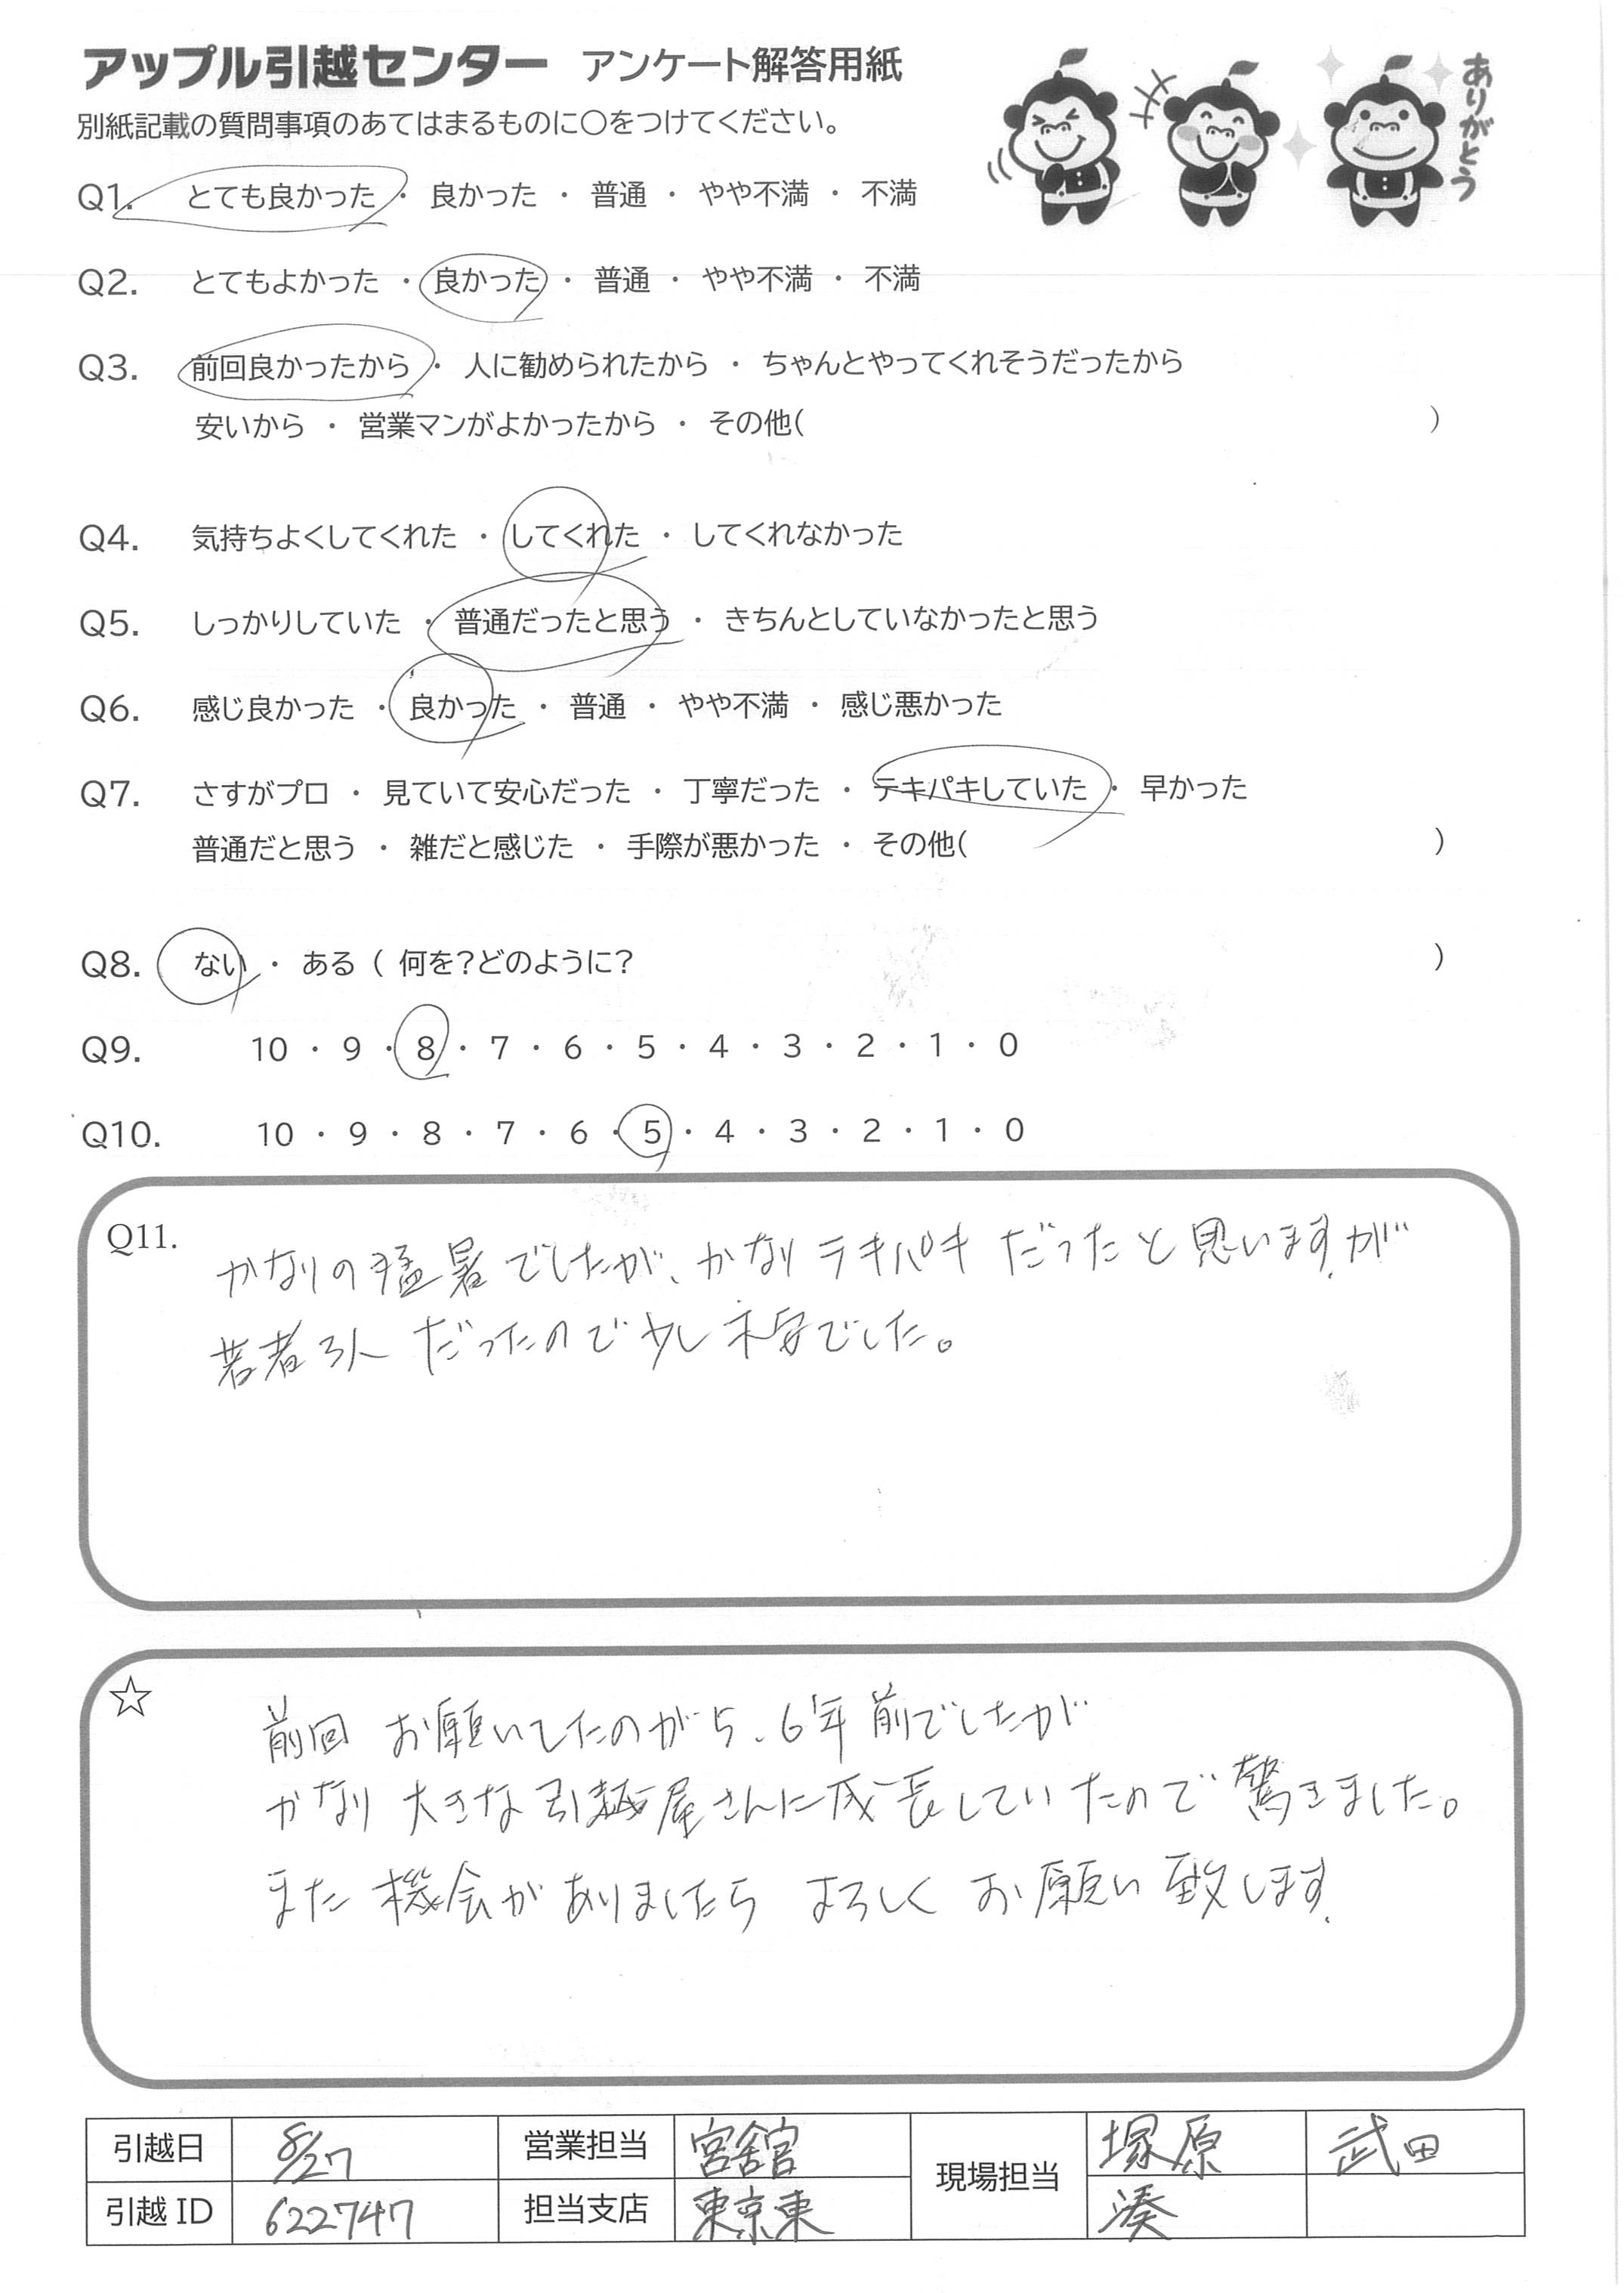 アップル引越センター アンケート解答用紙
別紙記載の質問事項のあてはまるものに〇をつけてください。
ありがとう
Q1. とても良かった ・ 良かった ・ 普通 ・ やや不満 ・ 不満
Q2. とてもよかった ・ 良かった ・ 普通 ・ やや不満 ・ 不満
Q3. 前回良かったから ・ 人に勧められたから ・ ちゃんとやってくれそうだったから
安いから ・ 営業マンがよかったから ・ その他( )
Q4. 気持ちよくしてくれた ・ してくれた ・ してくれなかった
Q5. しっかりしていた ・ 普通だったと思う ・ きちんとしていなかったと思う
Q6. 感じ良かった ・ 良かった ・ 普通 ・ やや不満 ・ 感じ悪かった
Q7. さすがプロ ・ 見ていて安心だった ・ 丁寧だった ・ テキパキしていた ・ 早かった
普通だと思う ・ 雑だと感じた ・ 手際が悪かった ・ その他( )
Q8. ない ・ ある ( 何を?どのように? )
Q9. 10 ・ 9 ・ 8 ・ 7 ・ 6 ・ 5 ・ 4 ・ 3 ・ 2 ・ 1 ・ 0
Q10. 10 ・ 9 ・ 8 ・ 7 ・ 6 ・ 5 ・ 4 ・ 3 ・ 2 ・ 1 ・ 0
Q11. かなりの猛暑でしたが、かなりテキパキだったと思いますが
若者3人だったので少し不安でした。
☆ 前回お願いしたのが5、6年前でしたが
かなり大きな引越屋さんに成長していたので驚きました。
また機会がありましたらよろしくお願い致します.
引越日 8/27 営業担当 宮舘 現場担当 塚原 武田
引越ID 622747 担当支店 東京東 湊